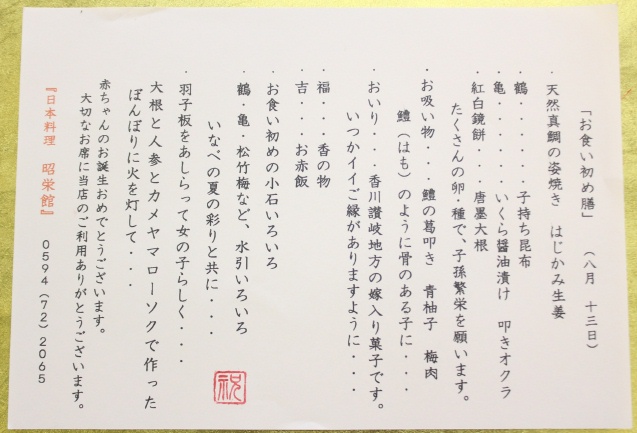 「お食い初め膳」　（八月　十三日）
・天然真鯛の姿焼き　はじかみ生姜
鶴・・・・・・子持ち昆布
亀・・・・・いくら醤油漬け　叩きオクラ
・紅白鏡餅・・・・唐墨大根
たくさんの卵・種で、子孫繁栄を願います。
・お吸い物・・・鱧の葛叩き　青柚子　梅肉
鱧（はも）のように骨のある子に・・・・
・おいり・・・香川讃岐地方の嫁入り菓子です。
いつかイイご縁がありますように・・・・
・福・・・香の物
吉・・・お赤飯
・お食い初めの小石いろいろ
・鶴・亀・松竹梅など、水引いろいろ
いなべの夏の彩りと共に・・・
・羽子板をあしらって女の子らしく・・・・
大根と人参とカメヤマローソクで作った
ぼんぼりに火を灯して・・・
赤ちゃんのお誕生おめでとうございます。
大切なお席に当店のご利用ありがとうございます。
『日本料理　昭栄館』　0594（72）2065
祝